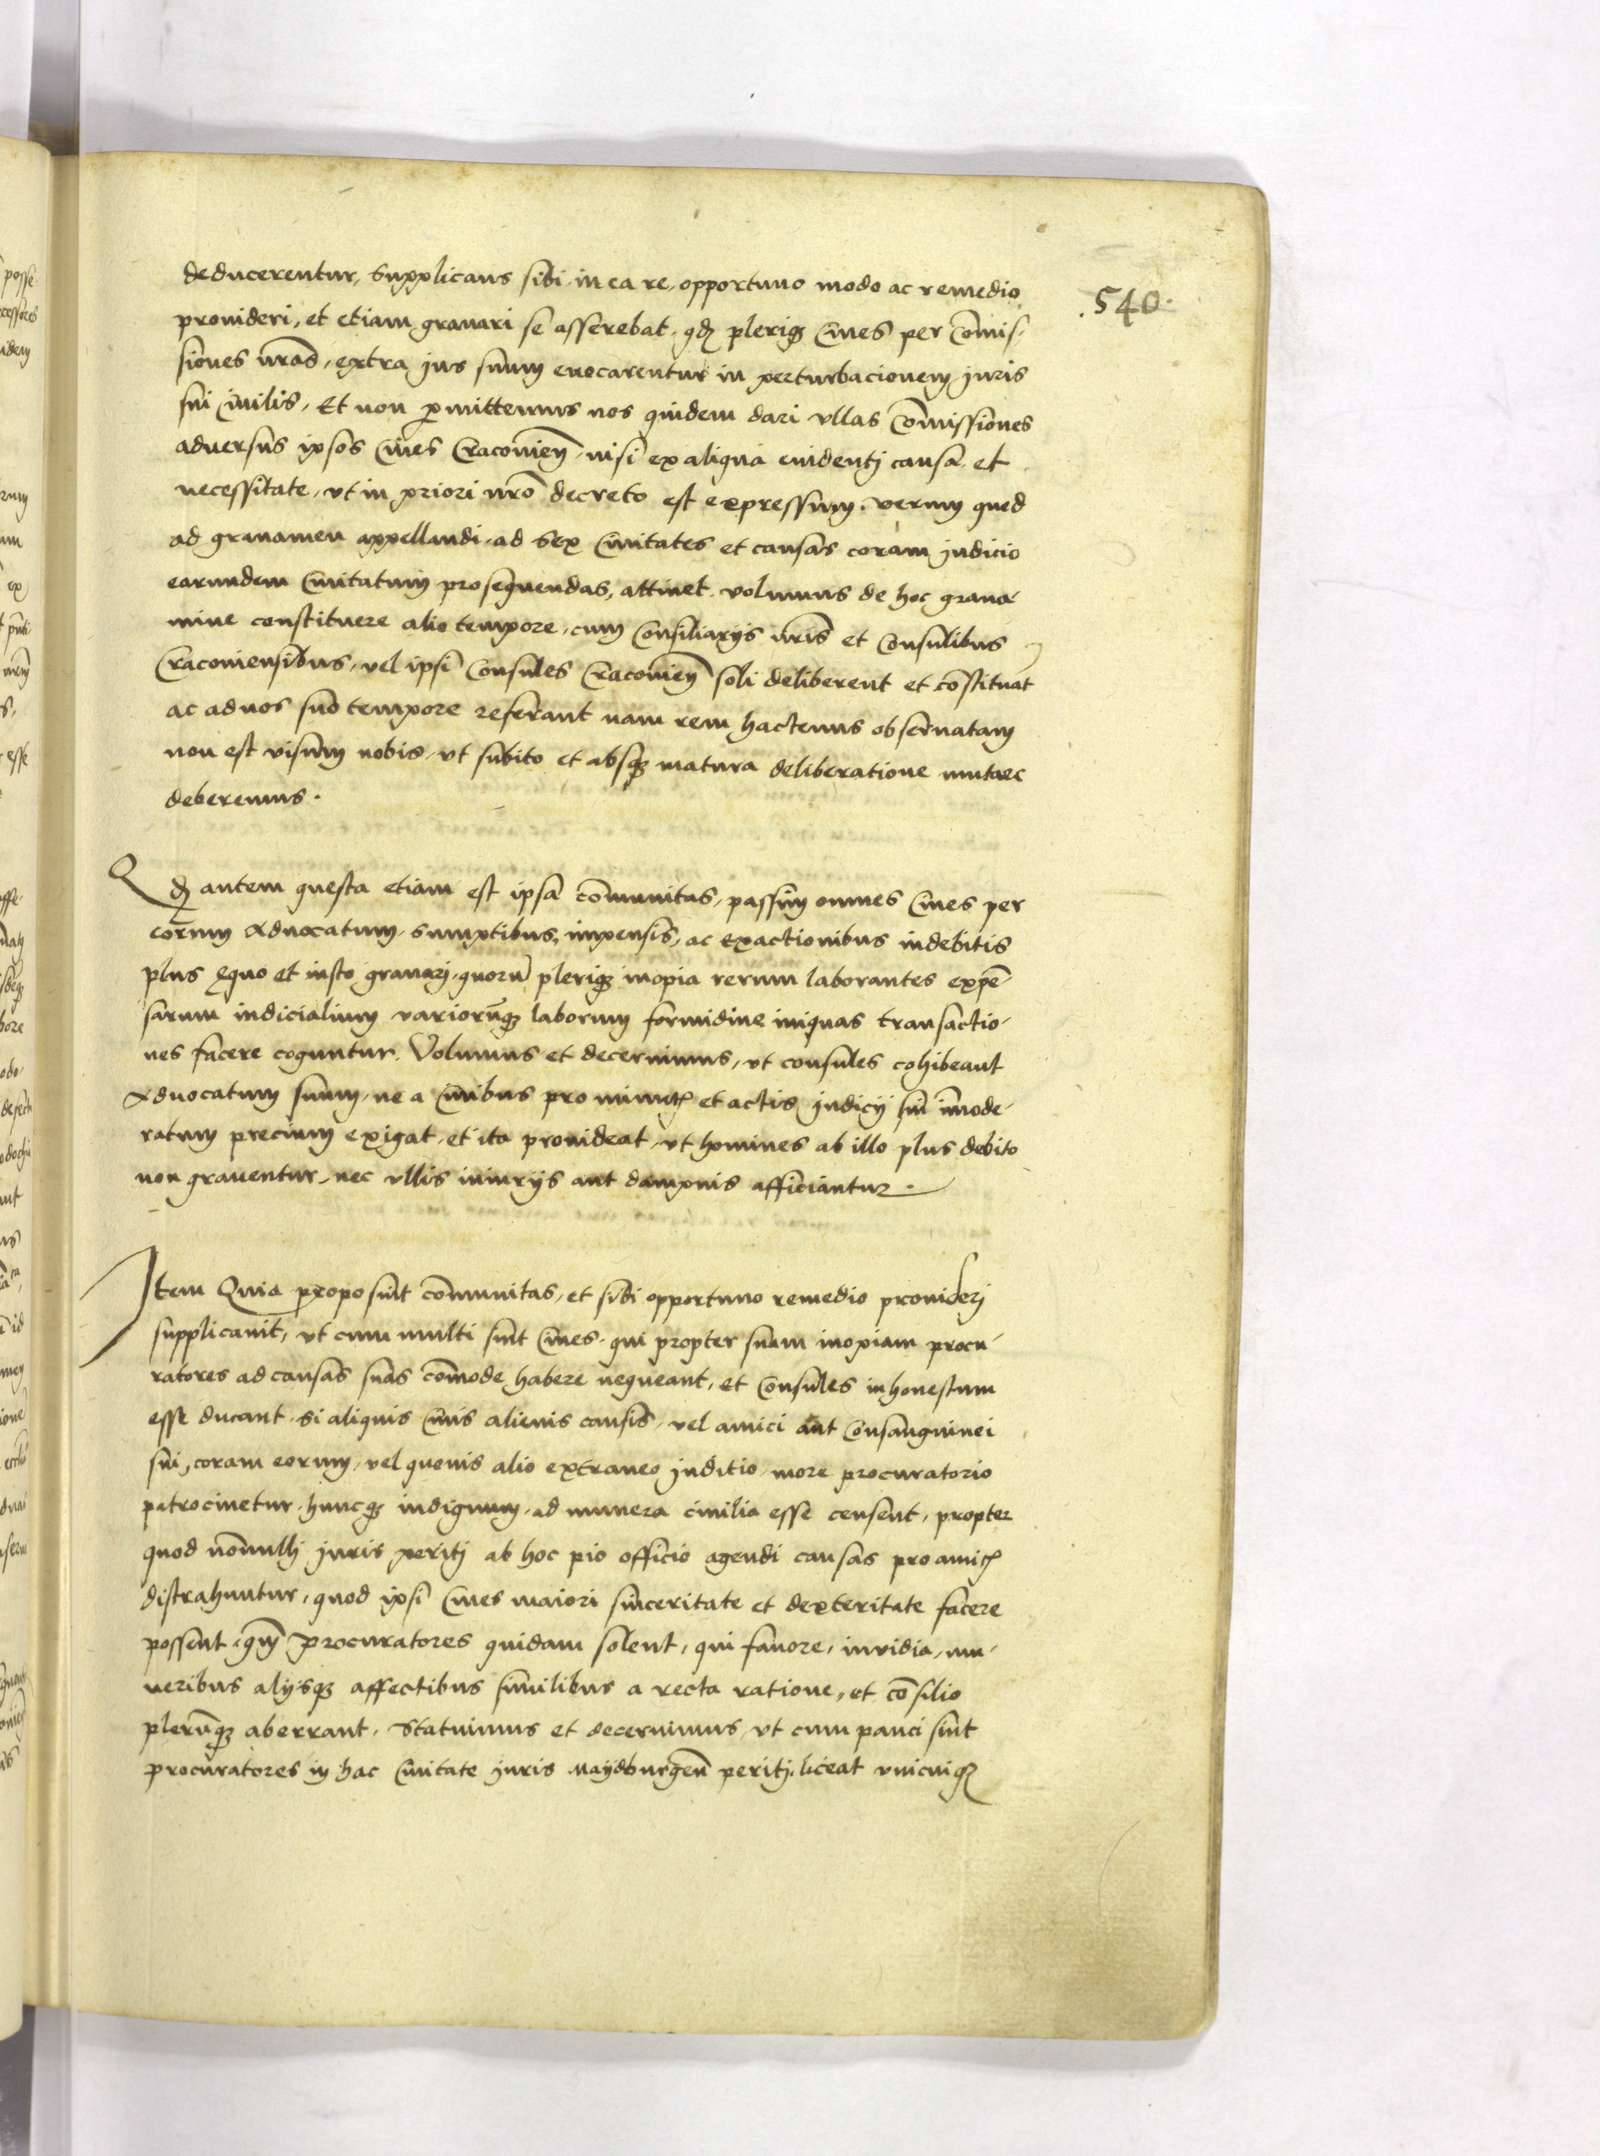 .540.
deducerentur, Supplicans sibi in ea re, opportuno modo ac remedio
prouideri, et etiam grauari se asserebat, qđ plerique Ciues per Cōmis-
siones nrās, extra jus suum euocarentur in perturbacionem juris
sui Ciuilis, Et non permittemus nos quidem dari vllas Cōmissiones
aduersus ipsos Ciues Cracouien̄, nisi ex aliqua euidentj causa et
necessitate, vt in priori nrō decreto est expressum. Verum quod
ad grauamen appellandi, ad Sex Ciuitates et causas coram judicio
earundem Ciuitatum prosequendas, attinet, volumus de hoc graua-
mine constituere alio tempore, cum Consiliarijs nrīs et Consulibus
Cracouiensibus, vel ipsi Consules Cracouien̄ soli deliberent et cōstituāt
ac ad nos suo tempore referant nam rem hactenus obseruatam
non est visum nobis, vt subito et absque matura deliberatione mutare
deberemus.
Qđ autem questa etiam est ipsa cōmunitas, passim omnes Ciues per
eorum Aduocatum, Sumptibus, impensis, ac exactionibus indebitis
plus ęquo et iusto grauarj, quorū plerique inopia rerum laborantes expē-
sarum iudicialium variorūque laborum formidine iniquas transactio-
nes facere coguntur. Volumus et decernimus, vt consules cohibeant
Aduocatum suum, ne a Ciuibus pro minutis et actis judicij sui īmode-
ratum precium exigat, et ita prouideat, vt homines ab illo plus debito
non grauentur, nec vllis iniurijs aut dampnis afficiantur.
Item Quia proposuit cōmunitas, et sibi opportuno remedio prouiderj
supplicauit, vt cum multi sint Ciues, qui propter suam inopiam procu-
ratores ad causas suas cōmode habere nequeant, et Consules inhonestum
esse ducant, si aliquis Ciuis alienis causis, vel amici aut Consanguinei
sui, coram eorum, vel quouis alio extraneo juditio, more procuratorio
patrocinetur, huncque indignum, ad munera ciuilia esse censent, propter
quod nōnullj juris peritj ab hoc pio officio agendi causas pro amicis
distrahuntur, quod ipsi Ciues maiori sinceritate et dexteritate facere
possent, qm̄ Procuratores quidam solent, qui fauore, inuidia, mu-
neribus alijsque affectibus similibus a recta ratione, et cōsilio
plerūque aberrant, Statuimus et decernimus, vt cum pauci sint
procuratores in hac Ciuitate juris Maydburgen̄ peritj, liceat vnicuique